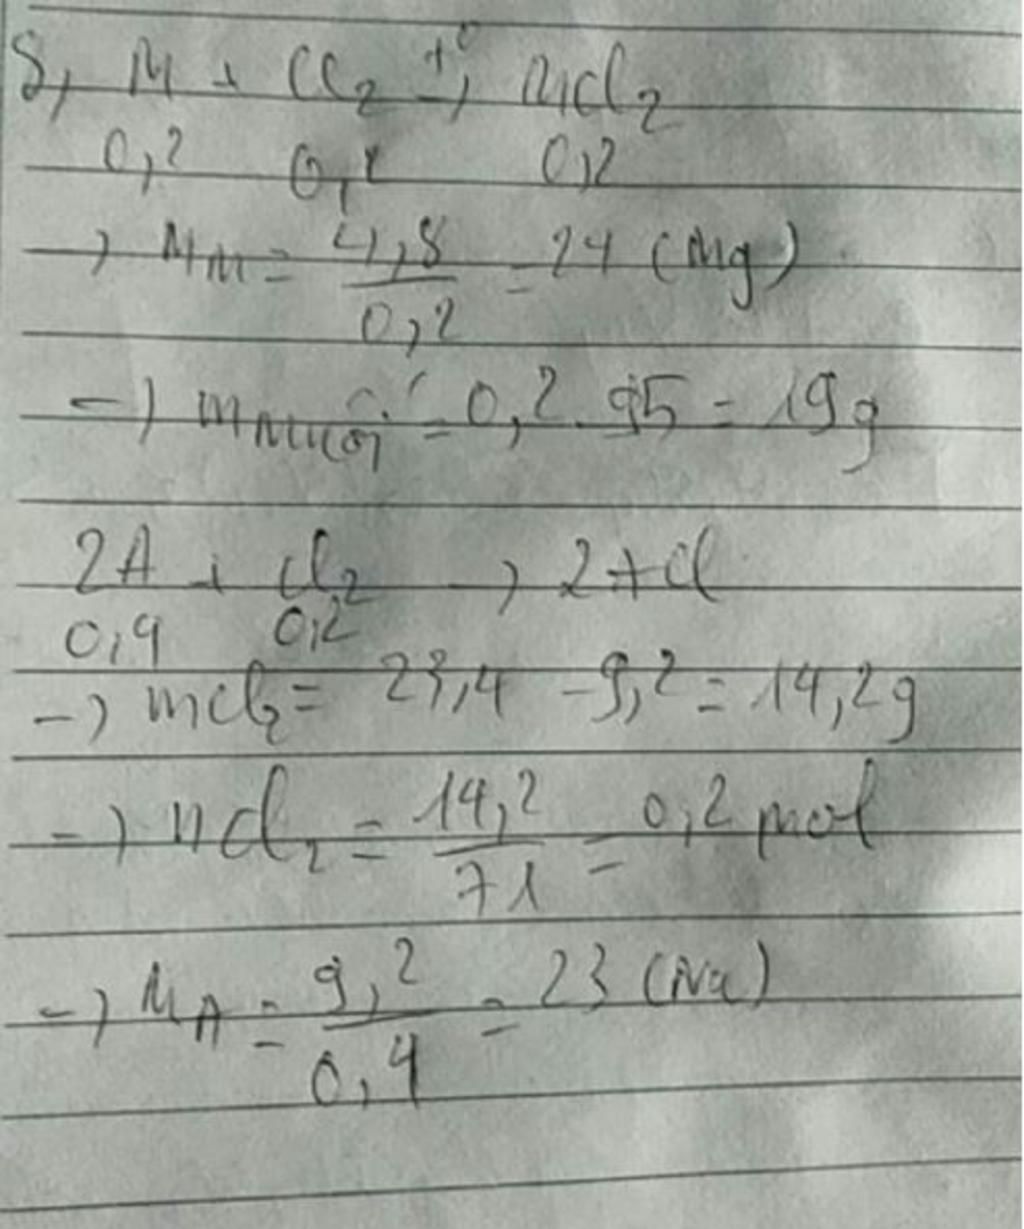 8, M + Cl2 t°→ MCl2
0,2 0,2 0,2
→ MM = 4,8/0,2 = 24 (Mg)
→ mMuối = 0,2 . 95 = 19g
2A + Cl2 → 2ACl
0,4 0,2
→ mCl2 = 23,4 - 9,2 = 14,2g
→ nCl2 = 14,2/71 = 0,2 mol
→ MA = 9,2/0,4 = 23 (Na)